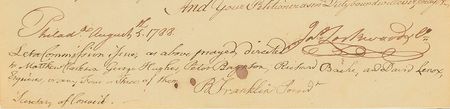 And Your Petitioner as in Duty bound will ever pray &c
Philada. August 5. 1788.
Let a Commission issue, as above prayed, directed
to Matthew Clarkson George Hughes, Peter Baynton, Richard Bache, and David Lenox,
Esquires or any Four or Three of them
B Franklin Presidt
Secretary of Council.